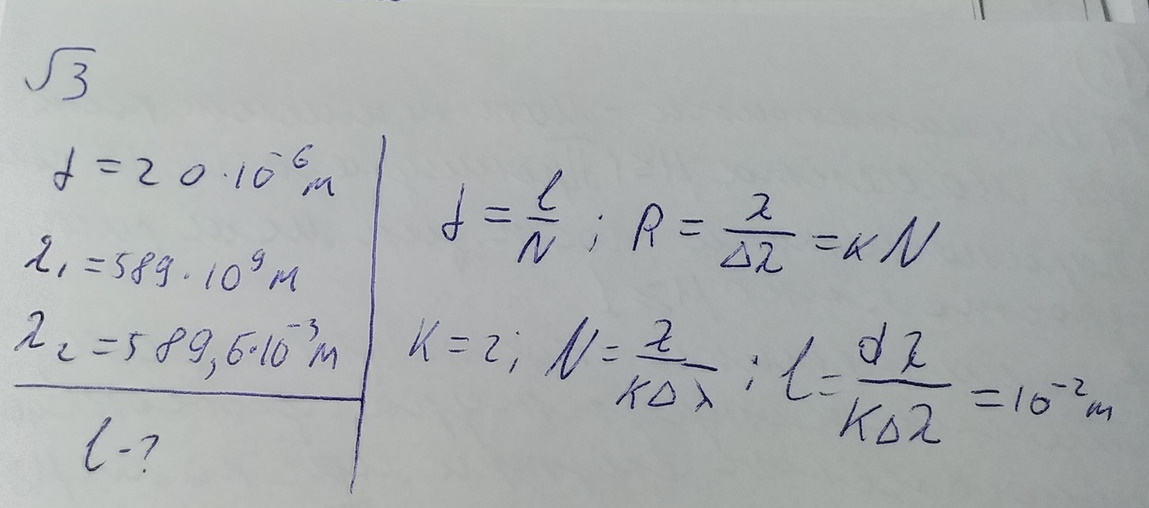 √3
d = 20·10⁻⁶ м
λ₁ = 589·10⁹ м
λ₂ = 589,6·10⁻³ м
l - ?
d = l/N ; R = λ/Δλ = кN
K = 2; N = λ/(KΔλ) ; l = dλ/(KΔλ) = 10⁻² м